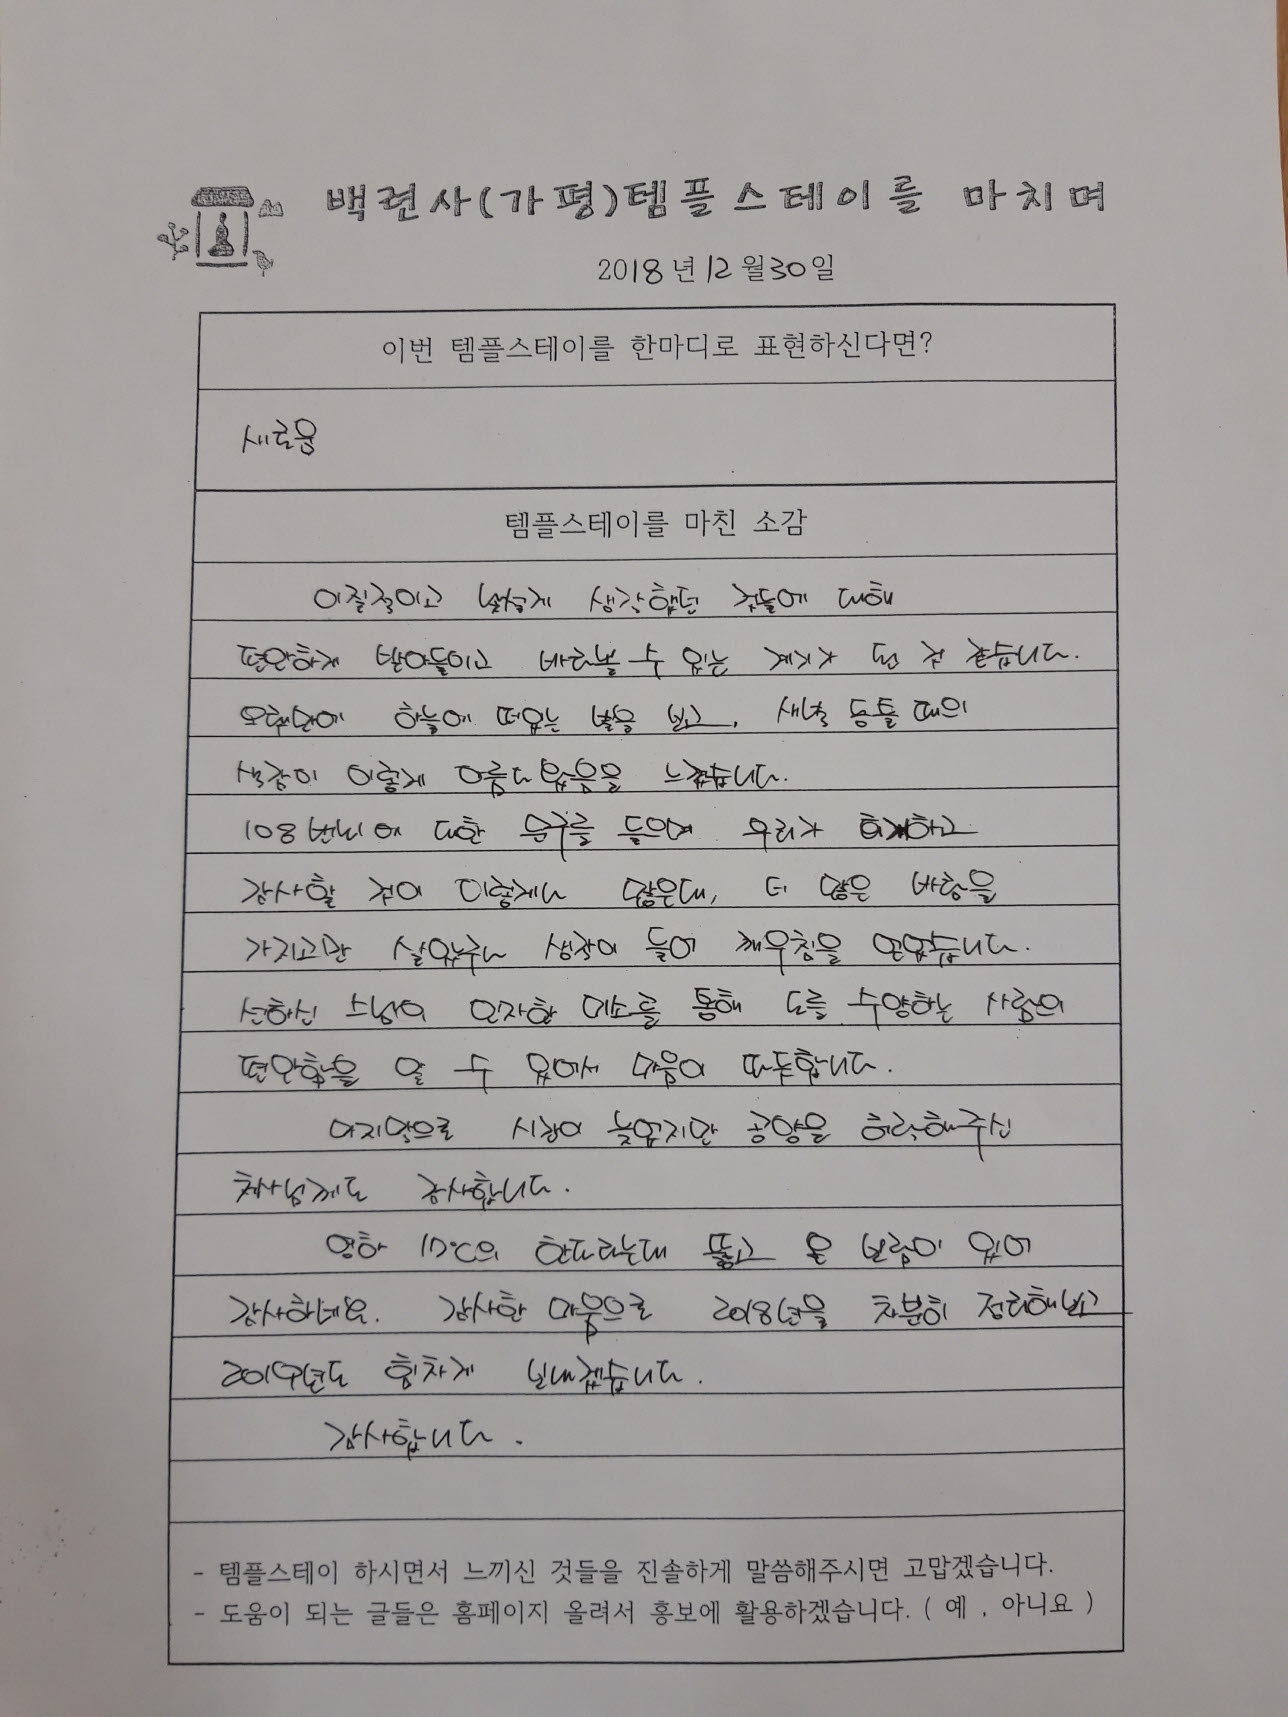 백련사(가평)템플스테이를 마치며
2018년 12월 30일
이번 템플스테이를 한마디로 표현하신다면?
새로움
템플스테이를 마친 소감
이질적이고 낯설게 생각했던 것들에 대해
편안하게 받아들이고 바라볼 수 있는 계기가 된 것 같습니다.
오랜만에 하늘에 떠있는 별을 보고, 새벽 동틀 때의
색감이 이렇게 아름다웠음을 느꼈습니다.
108번뇌에 대한 문구를 들으며 우리가 회개하고
감사할 것이 이렇게나 많은데, 더 많은 바람을
가지고만 살았구나 생각이 들어 깨우침을 얻었습니다.
선하신 스님의 인자한 미소를 통해 도를 수양하는 사람의
편안함을 알 수 있어서 마음이 따뜻합니다.
마지막으로 시간이 늦었지만 공양을 허락해주신
처사님께도 감사합니다.
영하 17℃의 한파라는데 뚫고 온 보람이 있어
감사하네요. 감사한 마음으로 2018년을 차분히 정리해보고
2019년도 힘차게 보내겠습니다.
감사합니다.
- 템플스테이 하시면서 느끼신 것들을 진솔하게 말씀해주시면 고맙겠습니다.
- 도움이 되는 글들은 홈페이지 올려서 홍보에 활용하겠습니다. ( 예 , 아니요 )